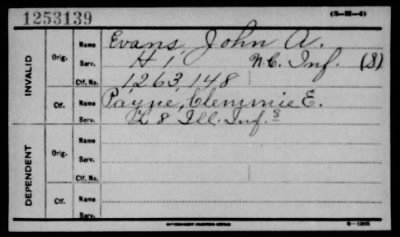 1253139 (3-H-4)
INVALID
Orig.
Name Evans, John A.
Serv. H 1, N.C. Inf. (S)
Ctf. No. 1263,148
Ctf.
Name Payne, Clemmie E.
Serv. L 8 Ill. Inf. S
DEPENDENT
Orig.
Name
Serv.
Ctf. No.
Ctf.
Name
Serv.
GOVERNMENT PRINTING OFFICE